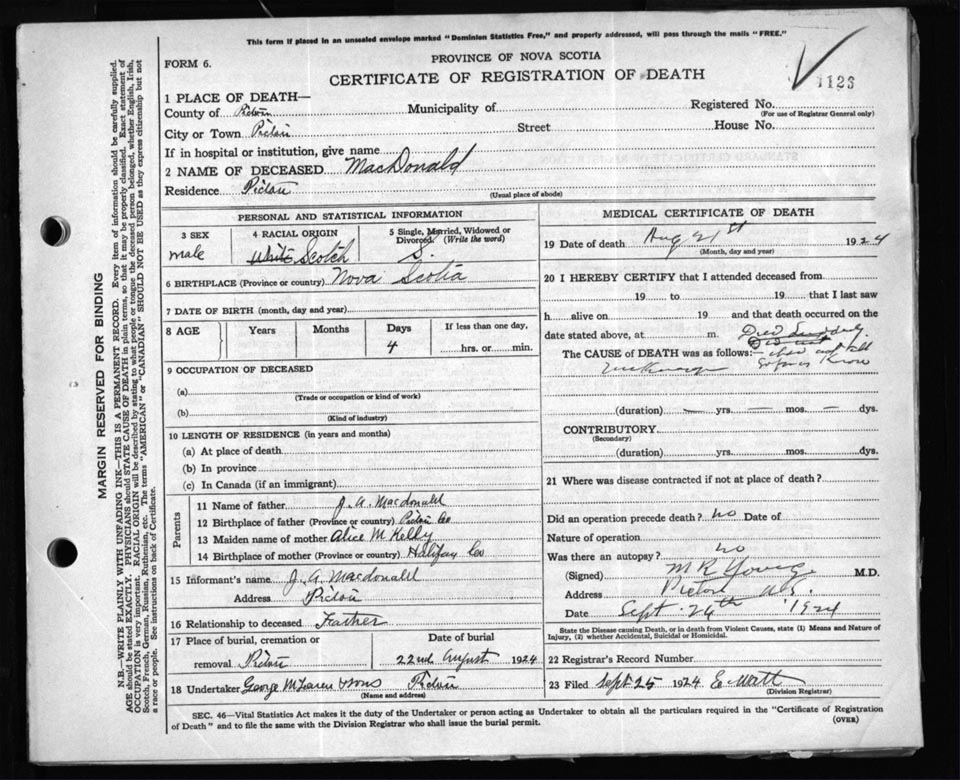 This form if placed in an unsealed envelope marked "Dominion Statistics Free," and properly addressed, will pass through the mails "FREE."
FORM 6.
PROVINCE OF NOVA SCOTIA
CERTIFICATE OF REGISTRATION OF DEATH
1123
1 PLACE OF DEATH—
County of Pictou Municipality of Registered No.
(For use of Registrar General only)
City or Town Pictou Street House No.
If in hospital or institution, give name
2 NAME OF DECEASED MacDonald
Residence Pictou
(Usual place of abode)
PERSONAL AND STATISTICAL INFORMATION
3 SEX male
4 RACIAL ORIGIN White Scotch
5 Single, Married, Widowed or Divorced. (Write the word) S.
6 BIRTHPLACE (Province or country) Nova Scotia
7 DATE OF BIRTH (month, day and year)
8 AGE Years Months Days If less than one day,
4 hrs. or min.
9 OCCUPATION OF DECEASED
(a)
(Trade or occupation or kind of work)
(b)
(Kind of industry)
10 LENGTH OF RESIDENCE (in years and months)
(a) At place of death
(b) In province
(c) In Canada (if an immigrant)
Parents
11 Name of father J. A. Macdonald
12 Birthplace of father (Province or country) Pictou Co
13 Maiden name of mother Alice M Kelly
14 Birthplace of mother (Province or country) Halifax Co
15 Informant's name J A Macdonald
Address Pictou
16 Relationship to deceased Father
17 Place of burial, cremation or Date of burial
removal Pictou 22nd August 1924
18 Undertaker George McLaren & sons Pictou
(Name and address)
MEDICAL CERTIFICATE OF DEATH
19 Date of death Aug 21st 1924
(Month, day and year)
20 I HEREBY CERTIFY that I attended deceased from
19 to 19 that I last saw
h alive on 19 and that death occurred on the
date stated above, at m. Died Suddenly
The CAUSE of DEATH was as follows:—
(duration) — yrs. — mos. — dys.
CONTRIBUTORY
(Secondary)
(duration) yrs. mos. dys.
21 Where was disease contracted if not at place of death?
Did an operation precede death? no Date of
Nature of operation
Was there an autopsy? no
(Signed) M R Young M.D.
Address Pictou N.S.
Date Sept. 24th 1924
State the Disease causing Death, or in death from Violent Causes, state (1) Means and Nature of
Injury, (2) whether Accidental, Suicidal or Homicidal.
22 Registrar's Record Number
23 Filed Sept 25 1924 E Watt
(Division Registrar)
SEC. 46—Vital Statistics Act makes it the duty of the Undertaker or person acting as Undertaker to obtain all the particulars required in the "Certificate of Registration
of Death" and to file the same with the Division Registrar who shall issue the burial permit.
(OVER)
MARGIN RESERVED FOR BINDING
N.B.—WRITE PLAINLY WITH UNFADING INK—THIS IS A PERMANENT RECORD. Every item of information should be carefully supplied.
AGE should be stated EXACTLY. PHYSICIANS should STATE CAUSE OF DEATH in plain terms, so that it may be properly classified. Exact statement of
OCCUPATION is very important. RACIAL ORIGIN will be described by stating to what people or tongue the deceased person belonged, whether English, Irish,
Scotch, French, German, Russian, Ruthenian, etc. The terms "AMERICAN" or "CANADIAN" SHOULD NOT BE USED as they express citizenship but not
a race or people. See instructions on back of Certificate.